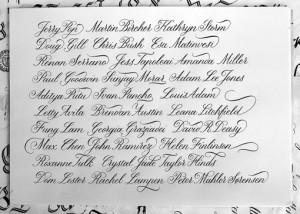 Jerry Ryn Martin Bircher Kathryn Storm
Doug Gill Chris Bush Esa Matinvesi
Renan Serrano Jess Tapolcai Amanda Miller
Paul Goodwin Sanjay Morar Adam Lee Jones
Aditya Putu Ivan Pancho Louis Adam
Letty Avila Brendan Austin Leana Litchfield
Fung Lam Georgia David R Deasy
Max Chen John Ramirez Helen Finlinson
Roxanne Falk Crystal Jade Taylor Hinds
Dom Lester Rachel Lampen Peter Mahler Sorensen